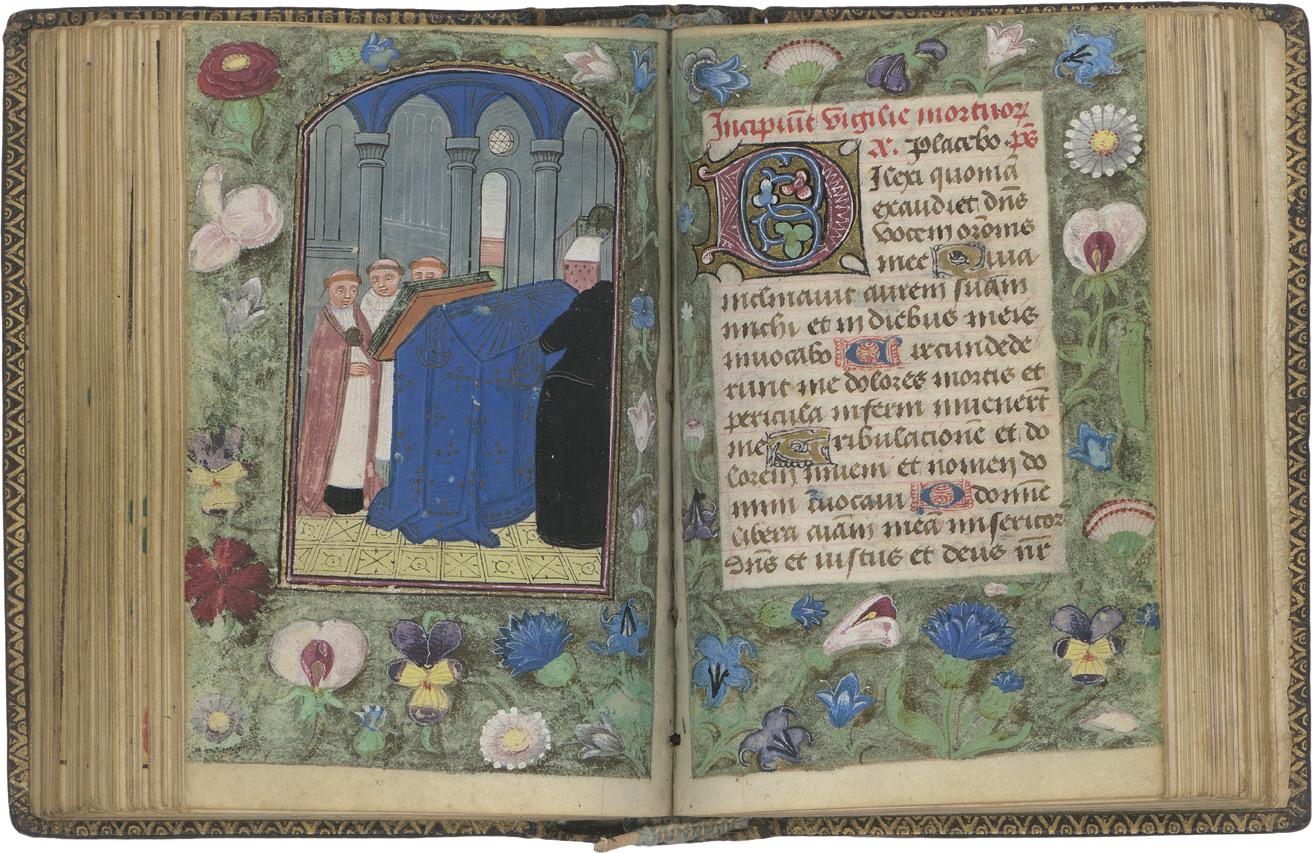 Incipiūt vigilie mortuoꝝ
A. Placebo. p̄s
Dilexi quoniā
exaudiet dn̄s
vocem orōnis
mee Quia
inclinauit aurem suam
michi et in diebus meis
inuocabo Circundede
runt me dolores mortis et
pericula inferni inuenerūt
me Tribulacionē et do
lorem inueni et nomen do
mini inuocaui O domine
libera aīam meā misericor
Dn̄s et iustus et deus nr̄